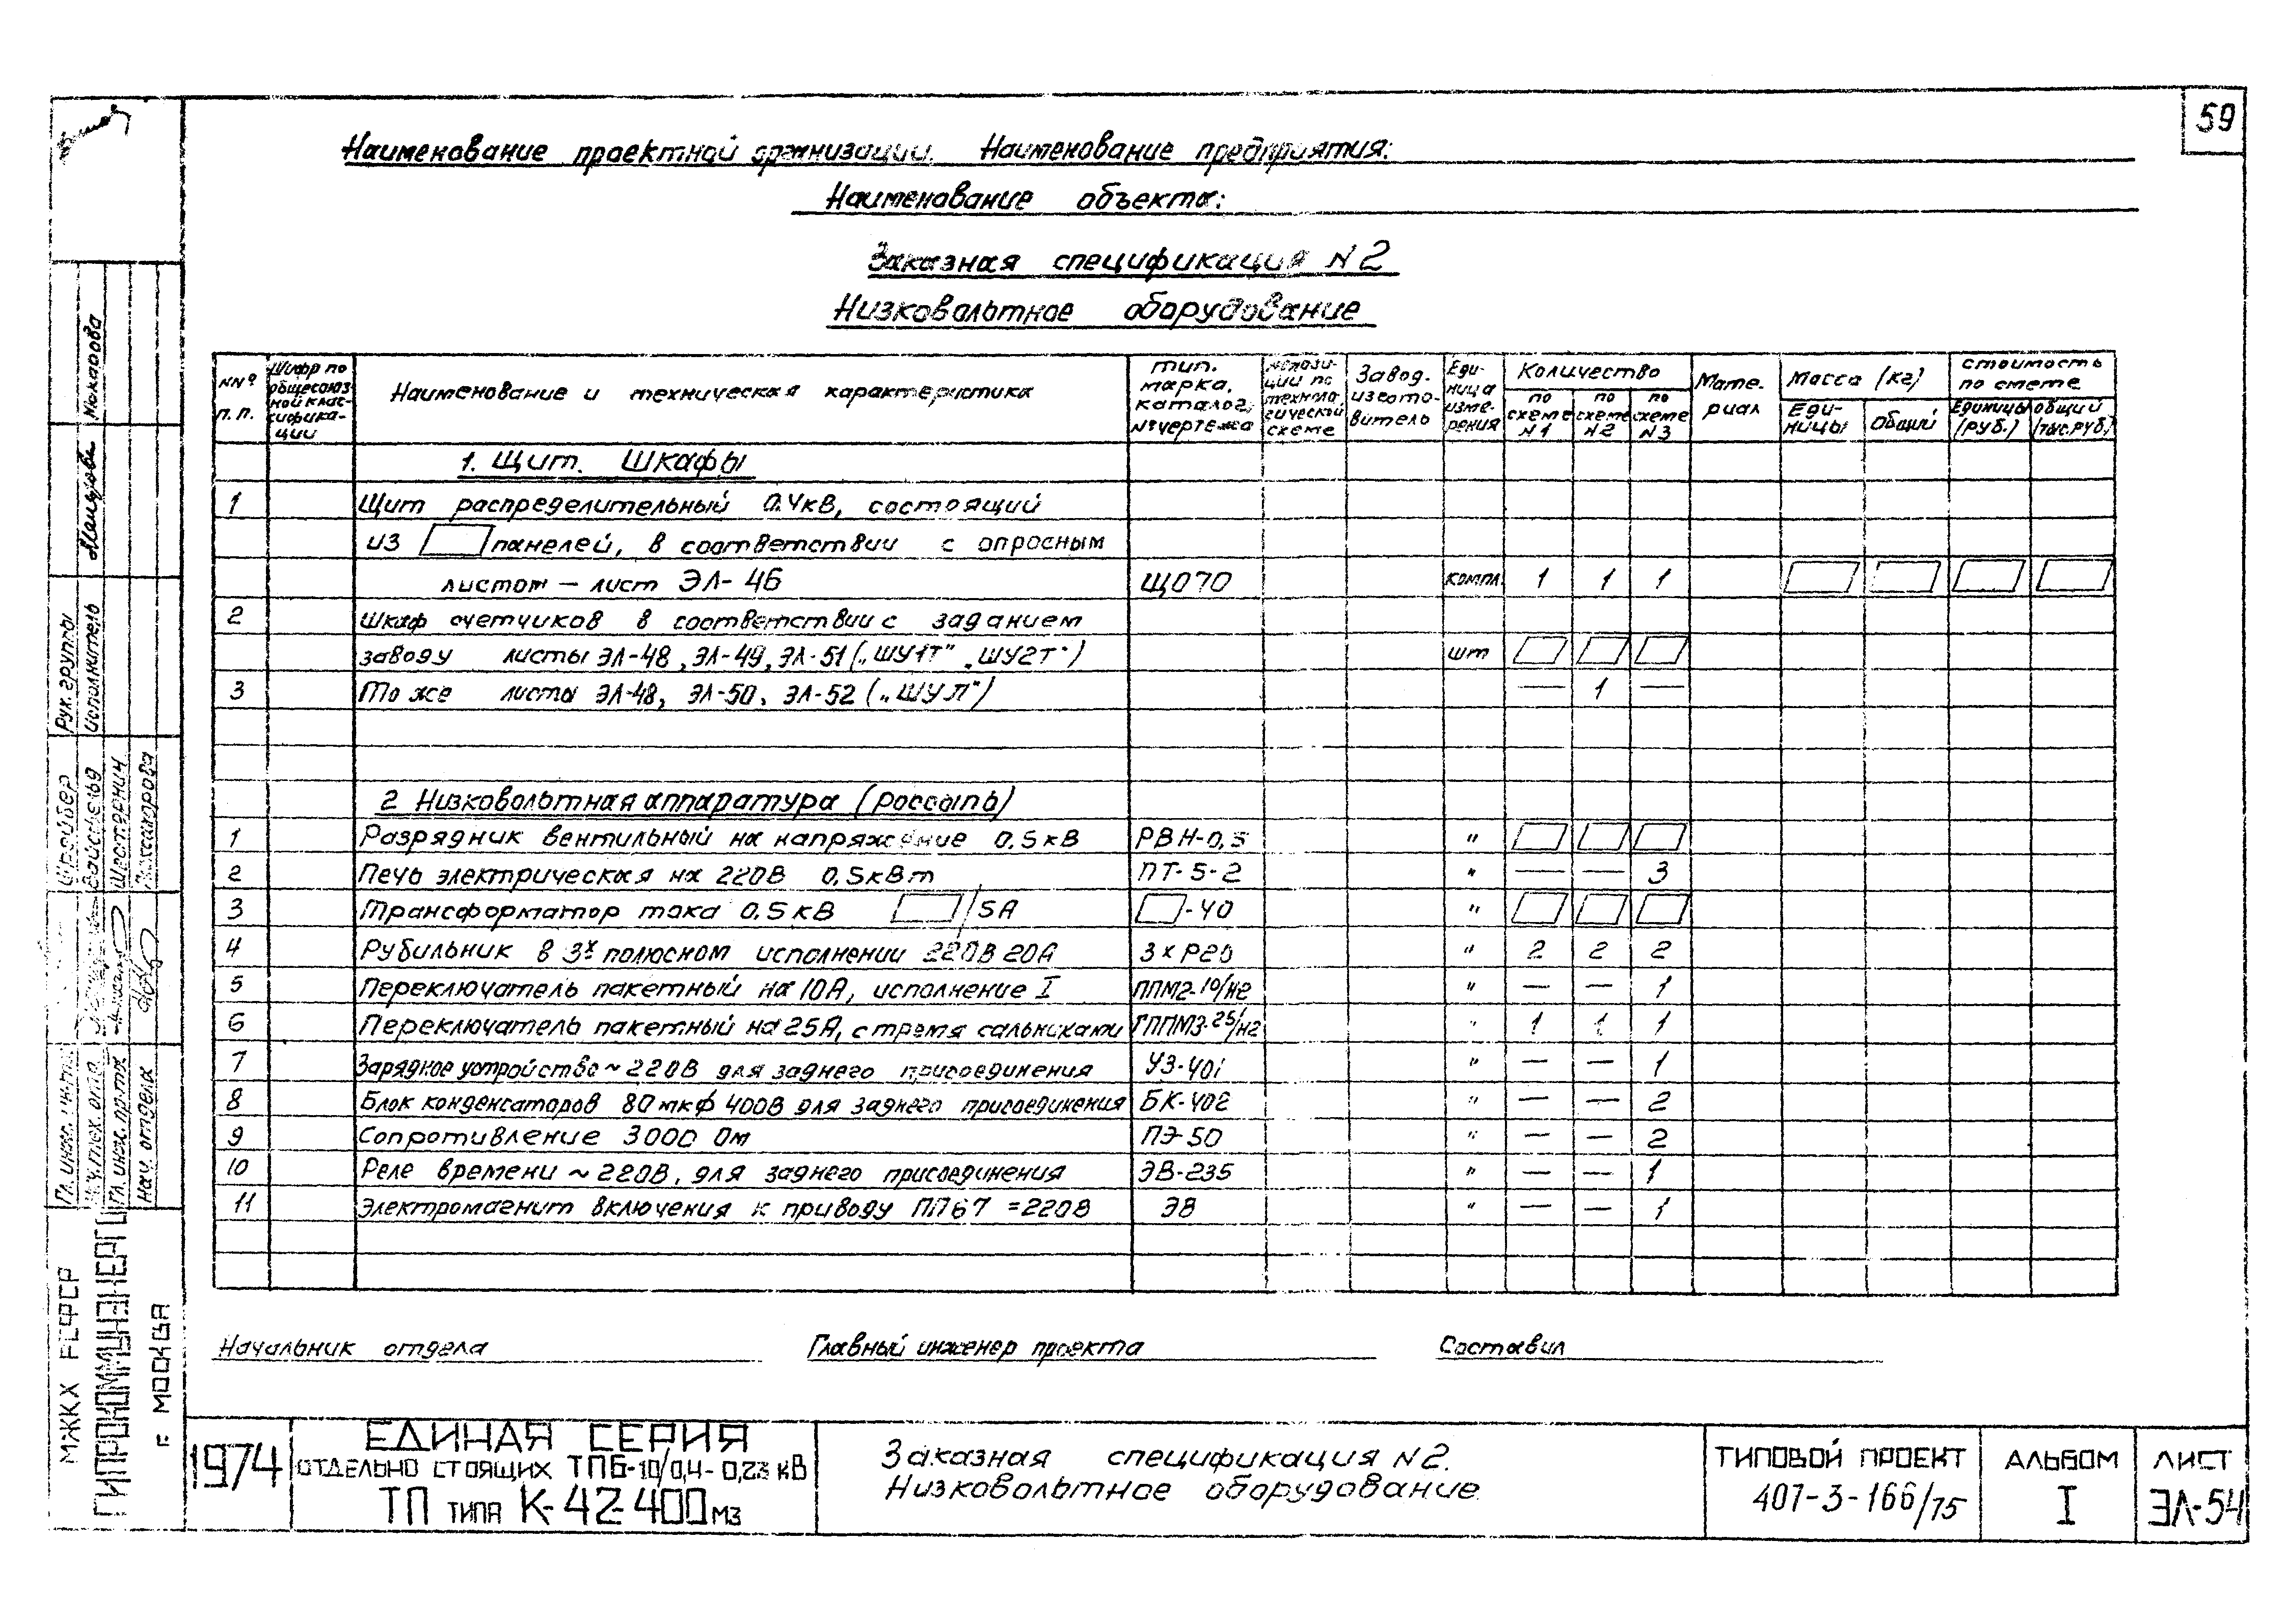 59
Наименование проектной организации. Наименование предприятия:
Наименование объекта:
Заказная спецификация N2
Низковольтное оборудование
NNº п.п. | Шифр по общесоюзной классификации | Наименование и техническая характеристика | Тип, марка, каталог, № чертежа | №позиции по технологической схеме | Завод-изготовитель | Единица измерения | Количество | по схеме N1 | по схеме N2 | по схеме N3 | Материал | Масса (кг) | Единицы | Общий | Стоимость по смете | Единицы (руб.) | общий (тыс.руб.)
1. Щит. Шкафы
1 Щит распределительный 0.4кВ, состоящий
из панелей, в соответствии с опросным
листом – лист ЭЛ-46 ЩО70 компл. 1 1 1
2 Шкаф счетчиков в соответствии с заданием
заводу листы ЭЛ-48, ЭЛ-49, ЭЛ-51 („ШУ1Т" „ШУ2Т") шт
3 То же листы ЭЛ-48, ЭЛ-50, ЭЛ-52 („ШУЛ") — 1 —
2 Низковольтная аппаратура (россыпь)
1 Разрядник вентильный на напряжение 0.5кВ РВН-0,5 "
2 Печь электрическая на 220В 0.5кВт ПТ-5-2 " — — 3
3 Трансформатор тока 0.5кВ /5А -40 "
4 Рубильник в 3х полюсном исполнении 220В 20А 3хР20 " 2 2 2
5 Переключатель пакетный на 10А, исполнение I ППМ2-10/Н2 " — — 1
6 Переключатель пакетный на 25А, с тремя сальниками ГППМ3-25/Н2 " 1 1 1
7 Зарядное устройство ~220В для заднего присоединения УЗ-401 " — — 1
8 Блок конденсаторов 80мкф 400В для заднего присоединения БК-402 " — — 2
9 Сопротивление 3000 Ом ПЭ-50 " — — 2
10 Реле времени ~220В, для заднего присоединения ЭВ-235 " — — 1
11 Электромагнит включения к приводу ПП67 =220В ЭВ " — — 1
Начальник отдела Главный инженер проекта Составил
1974
ЕДИНАЯ СЕРИЯ
ОТДЕЛЬНО СТОЯЩИХ ТПБ-10/0,4-0,23 кВ
ТП ТИПА К-42-400м3
Заказная спецификация N2.
Низковольтное оборудование.
ТИПОВОЙ ПРОЕКТ
407-3-166/75
АЛЬБОМ
I
ЛИСТ
ЭЛ-54
МЖКХ РСФСР
ГИПРОКОММУНЭНЕРГО
г. МОСКВА
Гл. инж. инст.
Гл. инж. пр-та
Нач. отдела
Шрейбер
Шестернин
Рук. группы
Исполнитель
Макарова